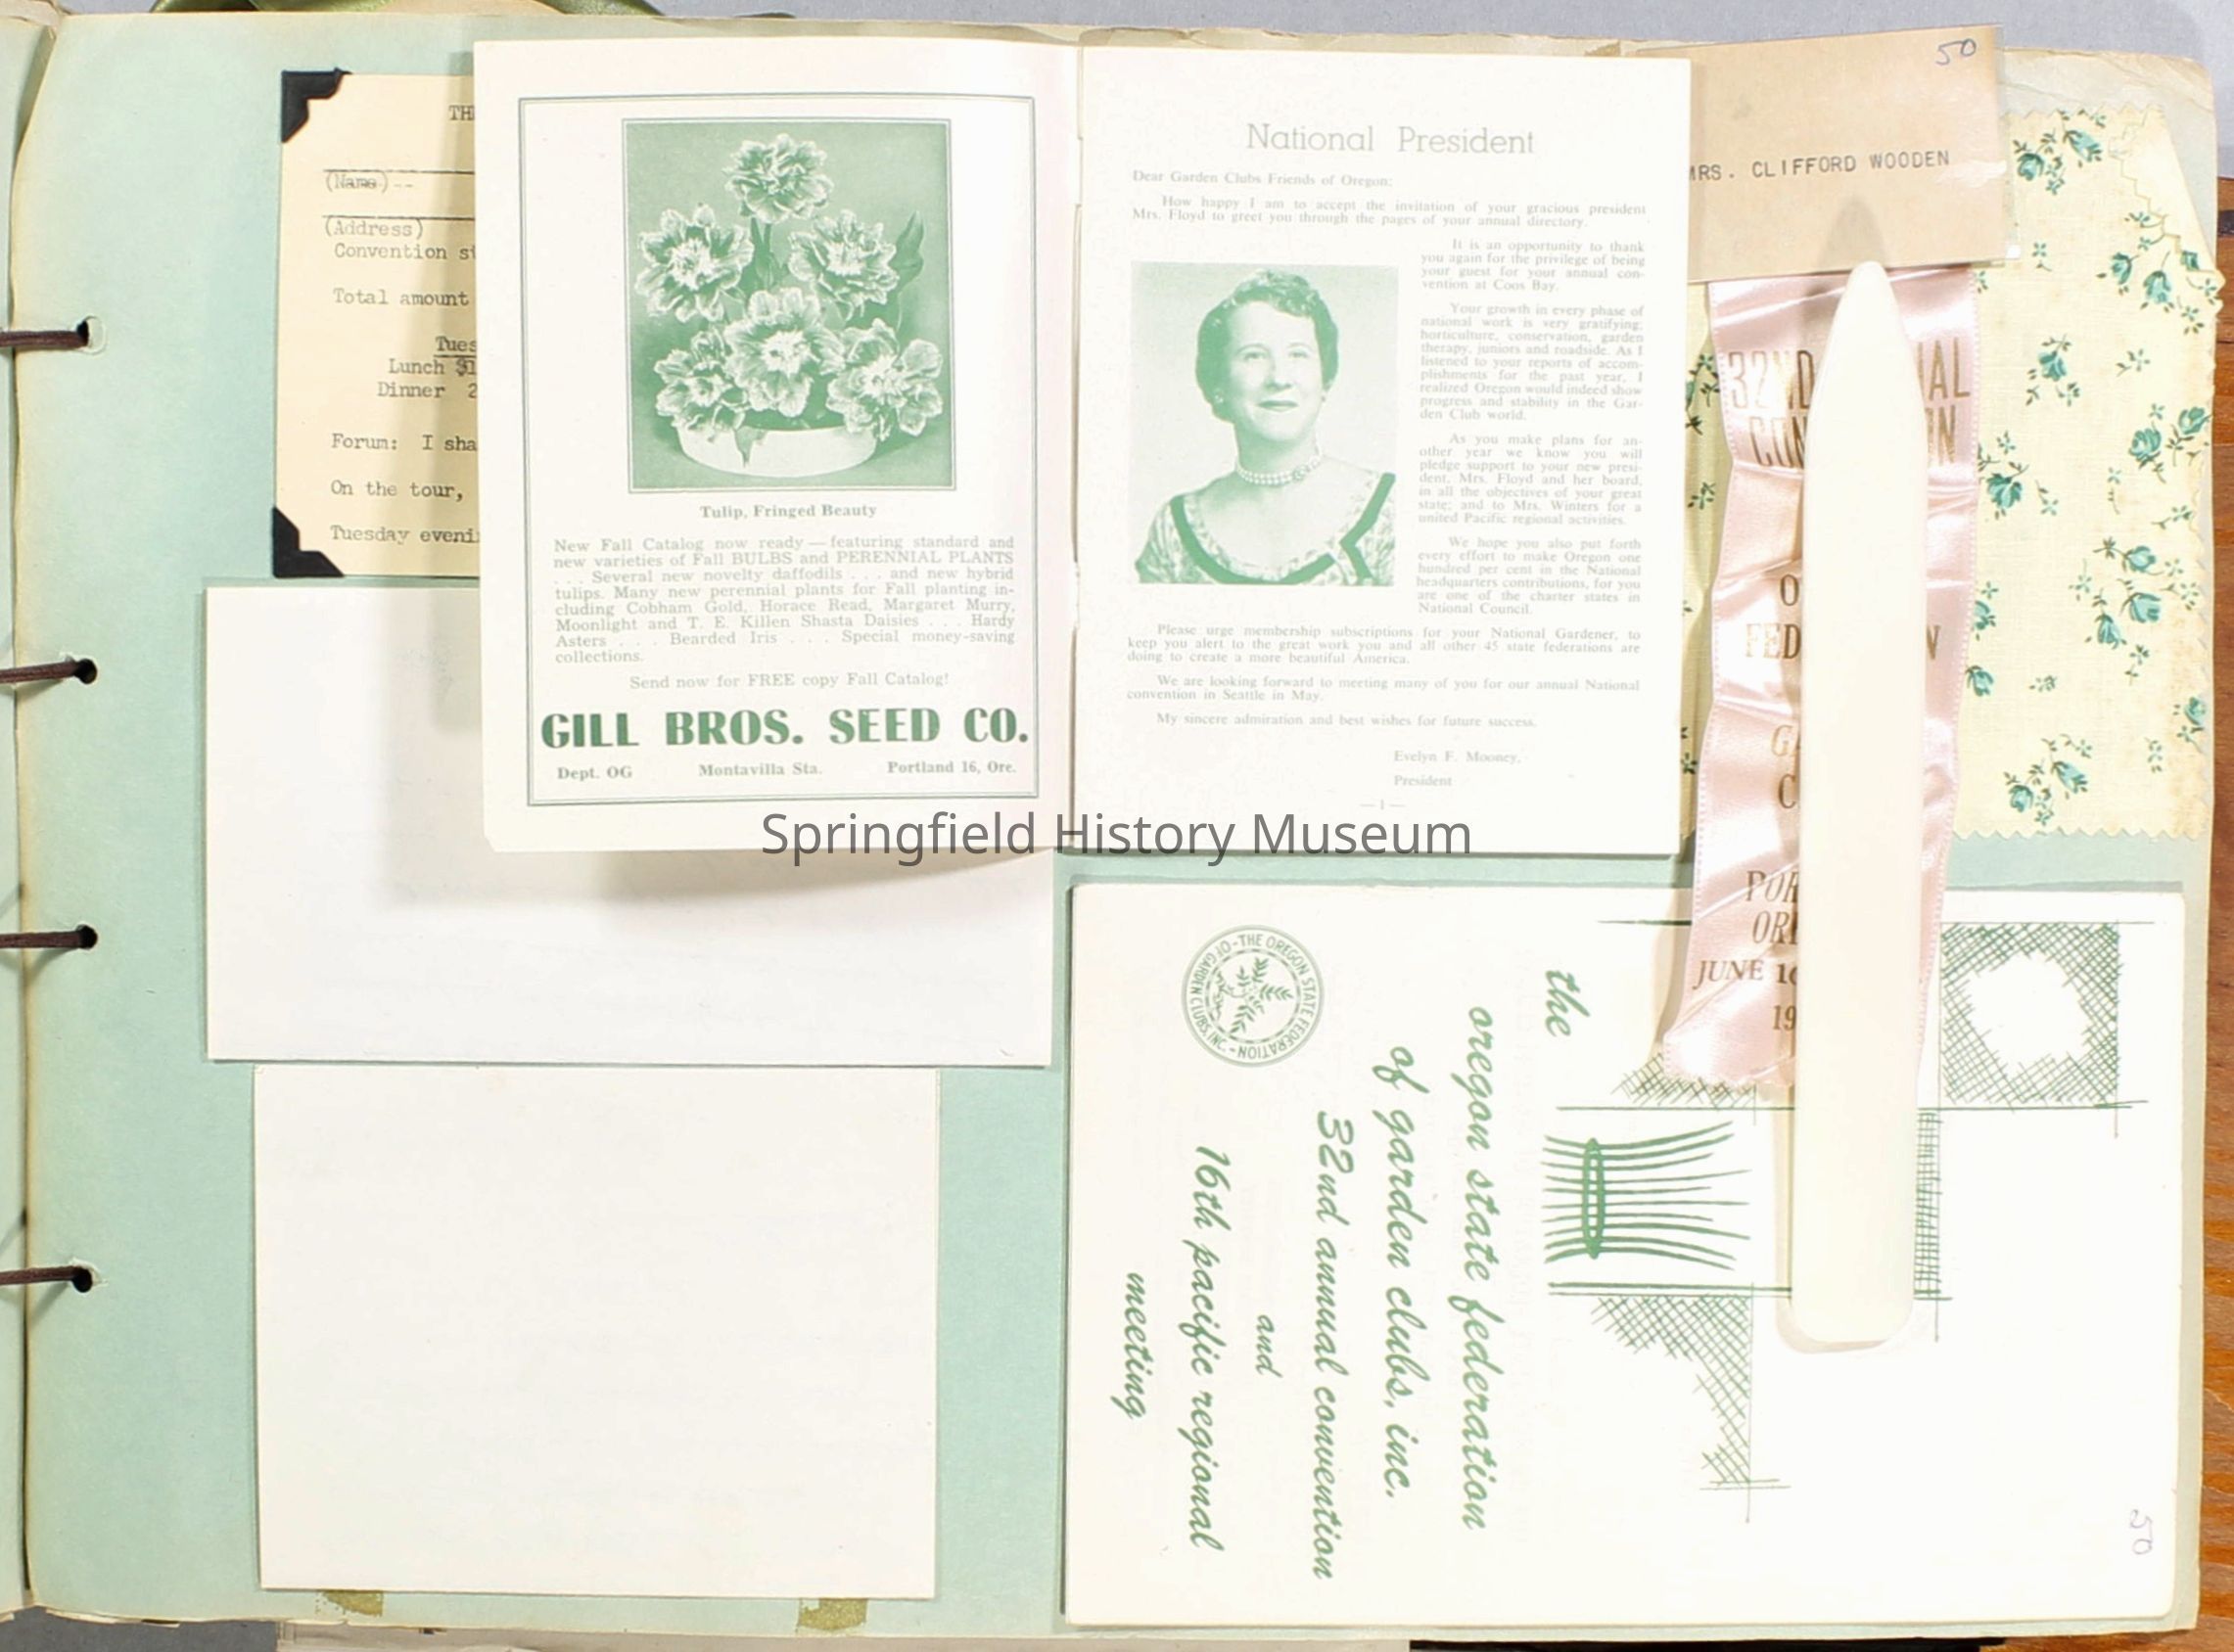 TH
(Name)--
(Address)
Convention
Total amount
Tues
Lunch $1
Dinner 2
Forum: I sha
On the tour,
Tuesday eveni
Tulip, Fringed Beauty
New Fall Catalog now ready — featuring standard and
new varieties of Fall BULBS and PERENNIAL PLANTS
. . . Several new novelty daffodils . . . and new hybrid
tulips. Many new perennial plants for Fall planting in-
cluding Cobham Gold, Horace Read, Margaret Murry,
Moonlight and T. E. Killen Shasta Daisies . . . Hardy
Asters . . . Bearded Iris . . . Special money-saving
collections.
Send now for FREE copy Fall Catalog!
GILL BROS. SEED CO.
Dept. OG Montavilla Sta. Portland 16, Ore.
National President
Dear Garden Clubs Friends of Oregon:
How happy I am to accept the invitation of your gracious president
Mrs. Floyd to greet you through the pages of your annual directory.
It is an opportunity to thank
you again for the privilege of being
your guest for your annual con-
vention at Coos Bay.
Your growth in every phase of
national work is very gratifying;
horticulture, conservation, garden
therapy, juniors and roadside. As I
listened to your reports of accom-
plishments for the past year, I
realized Oregon would indeed show
progress and stability in the Gar-
den Club world.
As you make plans for an-
other year we know you will
pledge support to your new presi-
dent, Mrs. Floyd and her board,
in all the objectives of your great
state; and to Mrs. Winters for a
united Pacific regional activities.
We hope you also put forth
every effort to make Oregon one
hundred per cent in the National
headquarters contributions, for you
are one of the charter states in
National Council.
Please urge membership subscriptions for your National Gardener, to
keep you alert to the great work you and all other 45 state federations are
doing to create a more beautiful America.
We are looking forward to meeting many of you for our annual National
convention in Seattle in May.
My sincere admiration and best wishes for future success.
Evelyn F. Mooney,
President
—1—
50
MRS. CLIFFORD WOODEN
32ND AL
CON N
O
FED N
G
C
POR
ORE
JUNE 16
19
Springfield History Museum
THE OREGON STATE FEDERATION OF GARDEN CLUBS, INC.
the
oregon state federation
of garden clubs, inc.
32nd annual convention
and
16th pacific regional
meeting
50